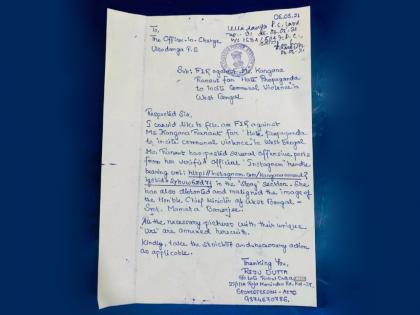 06.05.21
To,
The Officer-in-Charge
Ultadanga P.S
Sub: FIR against Ms. Kangana
Ranaut for 'Hate Propaganda
to incite Communal Violence' in
West Bengal
Respected Sir,
I would like to file an FIR against
Ms. Kangna Ranaut for 'Hate Propaganda
to incite communal violence' in West Bengal
Ms. Ranaut has posted several offensive posts
from her verified official 'Instagram' handle
bearing url:
in the "story" section. She
has also distorted and maligned the image of
the Hon'ble Chief Minister of West Bengal -
Smt. Mamata Banerjee.
All the necessary pictures with their unique
'url' are annexed herewith.
Kindly, take the strictest and necessary action
as applicable.
Thanking You,
RIJU DUTTA